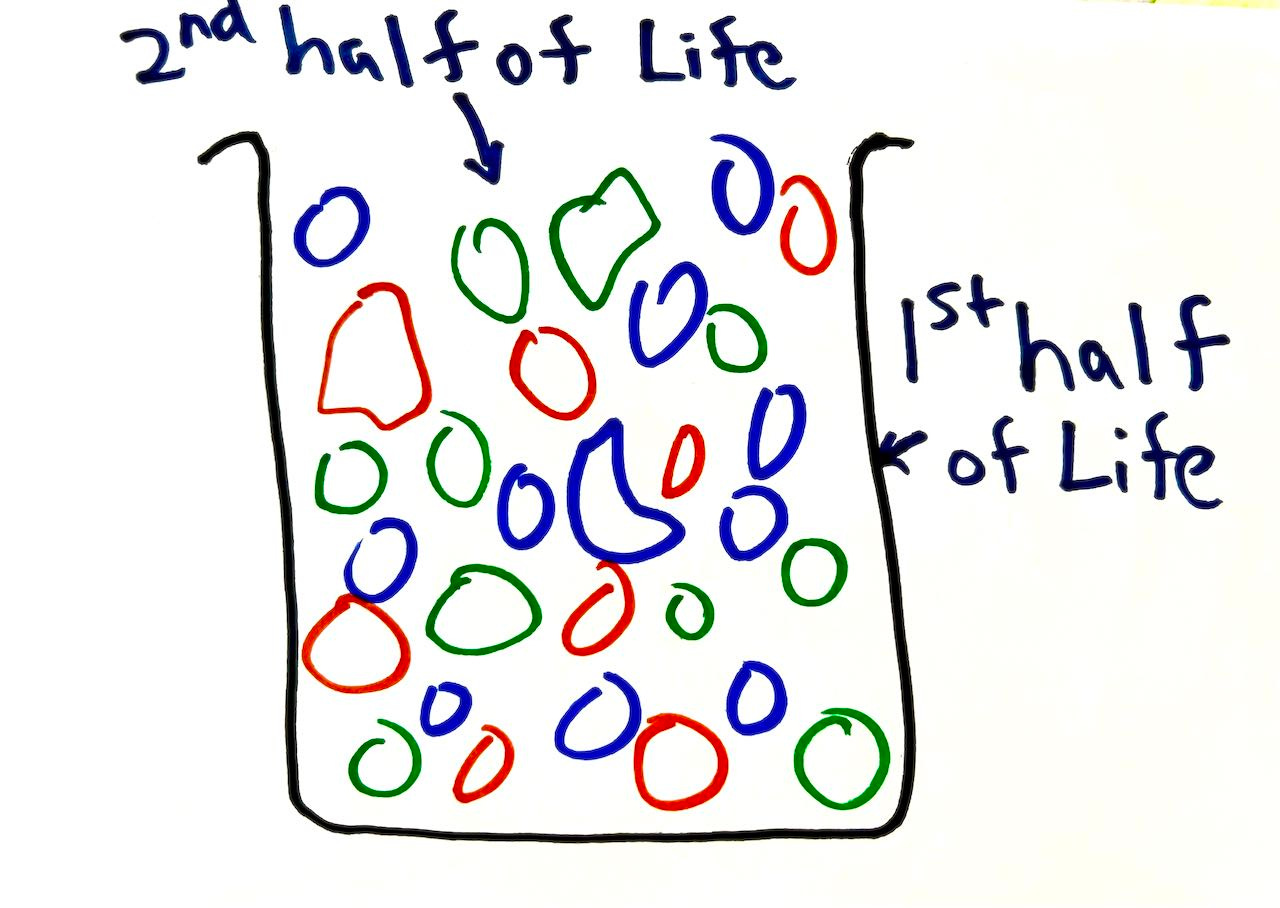 2nd half of Life
1st half
of Life